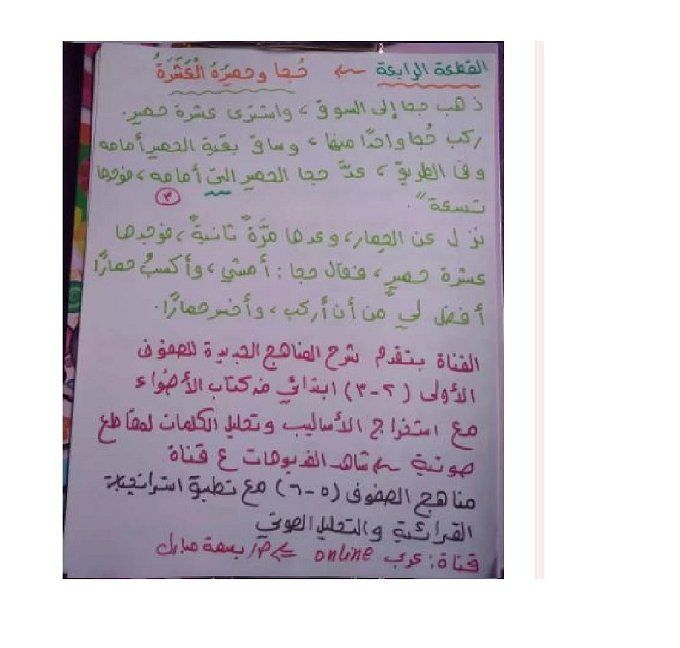 القطعة الرابعة ← جُحا وحميرة الْعَشَرَةُ
ذهب جحا إلى السوق، واشترى عشرة حمير.
ركب جُحا واحدًا منها، وساق بقية الحمير أمامه
وفى الطريق، عدَّ جحا الحمير التى أمامه، فوجدها
٣
تسعة".
نزل عن الحمار، وعدها مَرَّةً ثانيةً، فوجدها
عشرة حميرٍ، فقال جحا: أمشي، وأكسبُ حمارًا
أفضل لي من أن أركب، وأخسر حمارًا.
القناة بتقدم شرح المناهج الجديدة للصفوف
الأولى (٢-٣) ابتدائي من كتاب الأضواء
مع استخراج الأساليب وتحليل الكلمات لمقاطع
صوتية ← شاهد الفديوهات ع قناة
مناهج الصفوف (٥-٦) مع تطبيق استراتيجية
القرائية والتحليل الصوتي
قناة: عرب online ← م/ بسمة مبارك